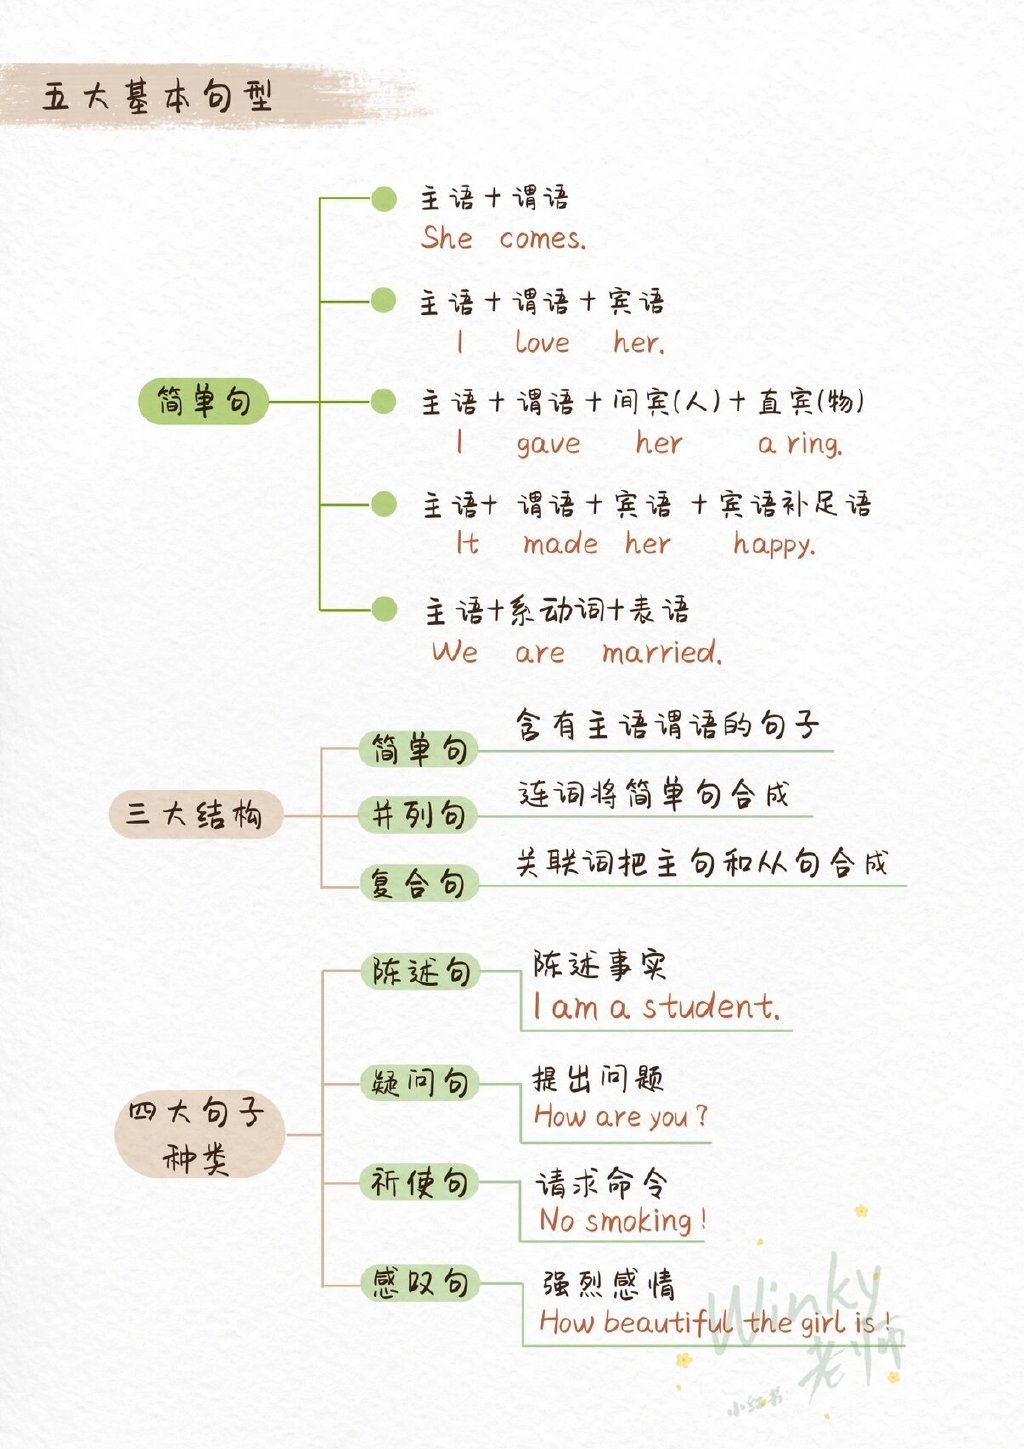 五大基本句型
主语+谓语
She comes.
主语+谓语+宾语
I love her.
简单句
主语+谓语+间宾(人)+直宾(物)
I gave her a ring.
主语+谓语+宾语+宾语补足语
It made her happy.
主语+系动词+表语
We are married.
三大结构
简单句
含有主语谓语的句子
并列句
连词将简单句合成
复合句
关联词把主句和从句合成
四大句子
种类
陈述句
陈述事实
I am a student.
疑问句
提出问题
How are you?
祈使句
请求命令
No smoking!
感叹句
强烈感情
How beautiful the girl is!
Winky
老师
小红书